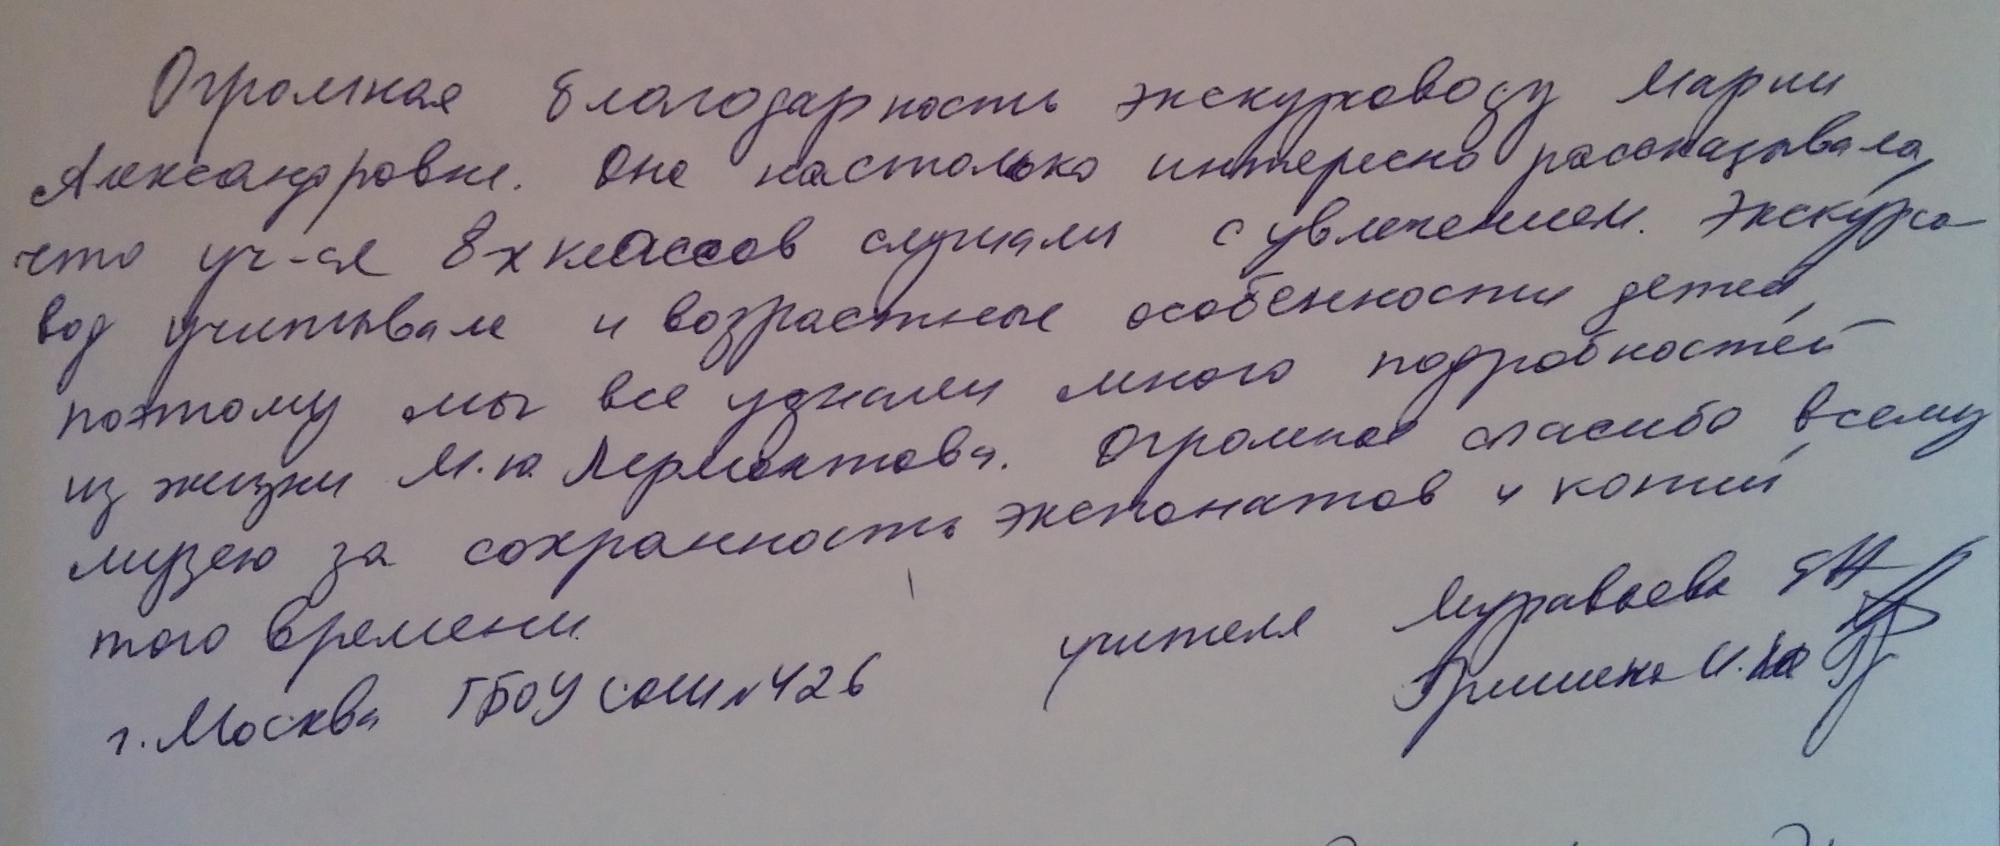 Огромная благодарность экскурсоводу Марии
Александровне. Она настолько интересно рассказывала,
что уч-ся 8х классов слушали с увлечением. Экскурсо-
вод учитывала и возрастные особенности детей,
поэтому мы все узнали много подробностей
из жизни М.Ю. Лермонтова. Огромное спасибо всему
музею за сохранность экспонатов и копий
того времени.
учителя Муравьева
Гришина И.Ю.
г. Москва ГБОУ СОШ №426